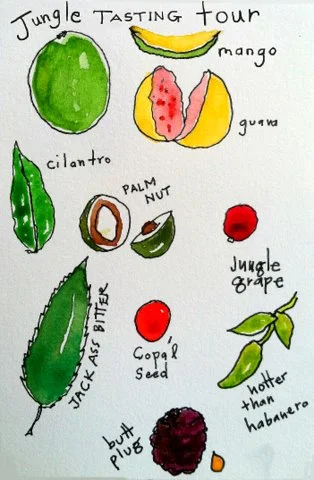 Jungle TASTING tour
mango
guava
cilantro
PALM
NUT
Jungle
grape
JACK ASS BITTER
Copal
Seed
hotter
than
habanero
butt
plug